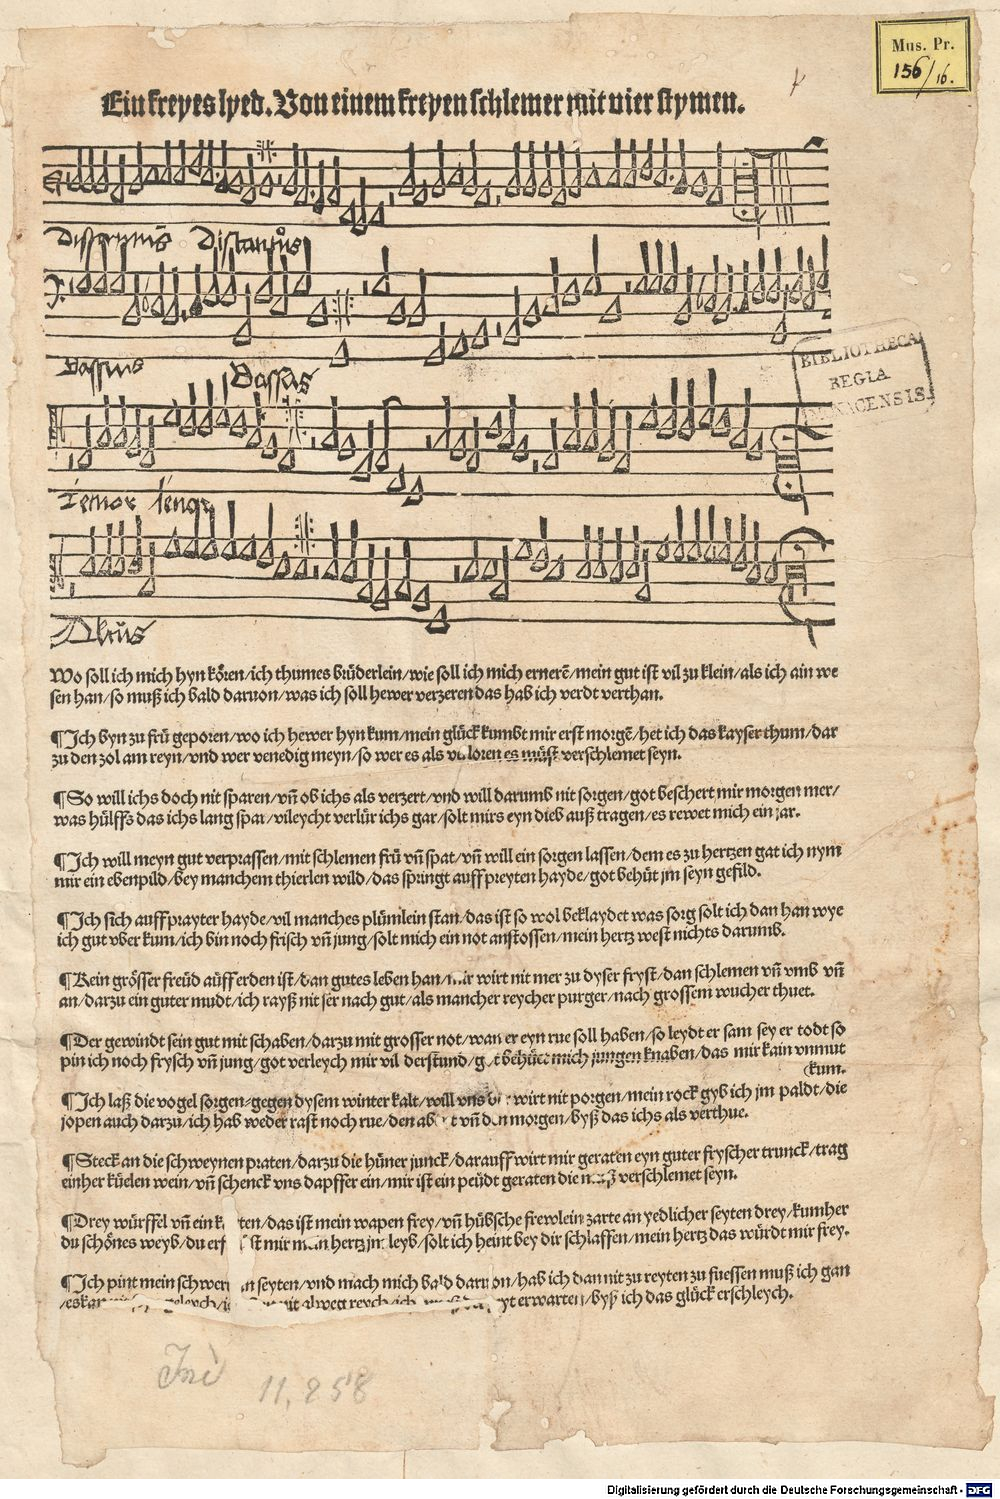 Mus. Pr.
156/16.
Ein freyes lyed. Von einem freyen schlemer mit vier stymen.
Discantus
Bassus Bassus
BIBLIOTHECA
REGIA
MONACENSIS.
Tenor Tenor
Altus
Wo soll ich mich hyn kören/ich thumes brüderlein/wie soll ich mich ernerē/mein gut ist vil zu klein/als ich ain we
sen han/so muß ich bald daruon/was ich soll hewer verzeren das hab ich verdt verthan.
¶Ich byn zu frü geporen/wo ich hewer hyn kum/mein glück kumbt mir erst morgē/het ich das kayser thum/dar
zu den zol am reyn/vnd wer venedig meyn/so wer es als verloren es müst verschlemet seyn.
¶So will ichs doch nit sparen/vñ ob ichs als verzert/vnd will darumb nit sorgen/got beschert mir morgen mer/
was hülffs das ichs lang spar/vileycht verlür ichs gar/solt mirs eyn dieb auß tragen/es rewet mich ein jar.
¶Ich will meyn gut verprassen/mit schlemen frü vñ spat/vñ will ein sorgen lassen/dem es zu hertzen gat ich nym
mir ein ebenpild/bey manchem thierlen wild/das springt auff preyten hayde/got behüt jm seyn gefild.
¶Ich sich auff prayter hayde/vil manches plümlein stan/das ist so wol beklaydet was sorg solt ich dan han wye
ich gut vber kum/ich bin noch frisch vñ jung/solt mich ein not anstossen/mein hertz west nichts darumb.
¶Kein grösser freüd aüff erden ist/dan gutes leben han/mir wirt nit mer zu dyser fryst/dan schlemen vñ vmb vñ
an/darzu ein guter mudt/ich rayß nit ser nach gut/als mancher reycher purger/nach grossem wucher thuet.
¶Der gewindt sein gut mit schaben/darzu mit grosser not/wan er eyn rue soll haben/so leydt er sam sey er todt so
pin ich noch frysch vñ jung/got verleych mir vil der stund/got behüt mich jungen knaben/das mir kain vnmut
(kum.
¶Ich laß die vogel sorgen gegen dysem winter kalt/will vns der wirt nit porgen/mein rock gyb ich jm paldt/die
jopen auch darzu/ich hab weder rast noch rue/den abent vñ den morgen/byß das ichs als verthue.
¶Steck an die schweynen praten/darzu die hüner junck/darauff wirt mir geraten eyn guter fryscher trunck/trag
einher küelen wein/vñ schenck vns dapffer ein/mir ist ein peüdt geraten die verschlemet seyn.
¶Drey würffel vñ ein karten/das ist mein wapen frey/vñ hübsche frewlein zarte an yedlicher seyten drey/kumher
du schönes weyb/du mir mein hertz jm leyb/solt ich heint bey dir schlaffen/mein hertz das würdt mir frey.
¶Ich pint mein schwert an seyten/vnd mach mich bald daruon/hab ich dan nit zu reyten zu fuessen muß ich gan
alweg reych/ich muß der zeyt erwarten/byß ich das glück erschleych.
11,258
Digitalisierung gefördert durch die Deutsche Forschungsgemeinschaft - DFG